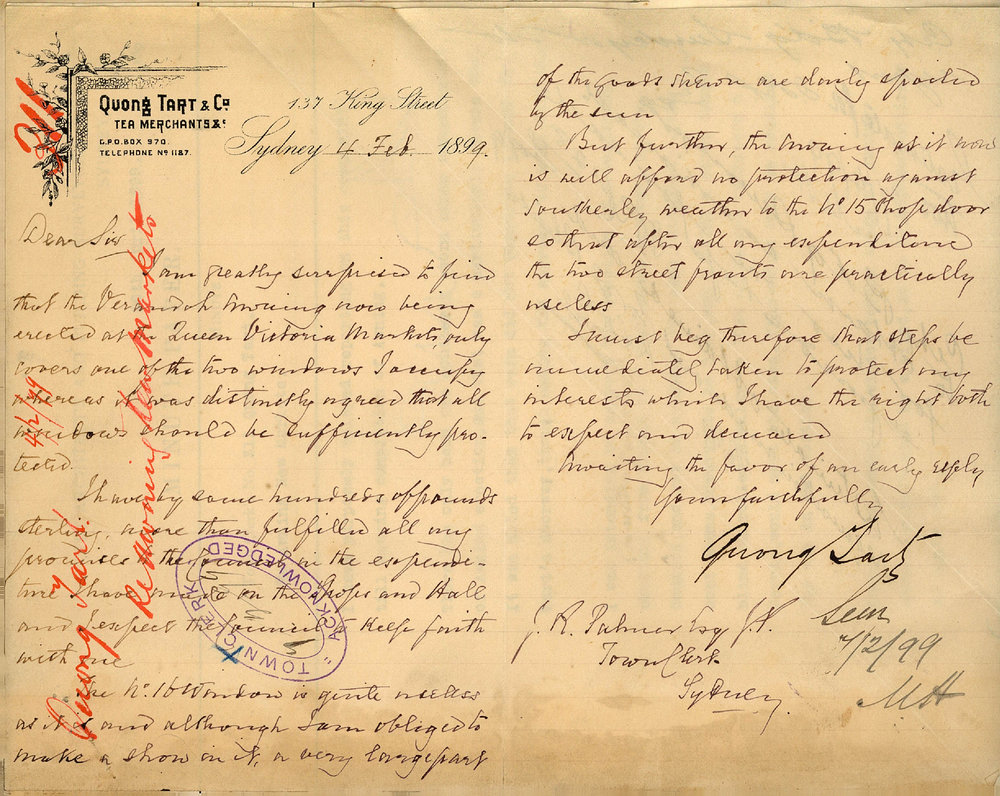 QUONG TART & Co
TEA MERCHANTS &c
G.P.O. BOX 970.
TELEPHONE No 1187.
137 King Street
Sydney 4 Feb. 1899.
Dear Sir
I am greatly surprised to find
that the Verandah Awning now being
erected at the Queen Victoria Markets only
covers one of the two windows I occupy
whereas it was distinctly agreed that all
windows should be sufficiently pro-
tected.
I have by some hundreds of pounds
sterling, more than fulfilled all my
promises to the Council in the expendi-
ture I have made on the Shops and Hall
and I expect the Council to keep faith
with me
The No. 16 Window is quite useless
as it is and although I am obliged to
make a show in it, a very large part
of the goods shewn are daily spoiled
by the sun
But further, the Awning as it now
is will afford no protection against
Southerley weather to the No 15 Shop door
so that after all my expenditure
the two street fronts are practically
useless
I must beg therefore that steps be
immediately taken to protect my
interests which I have the right both
to expect and demand
Awaiting the favor of an early reply
Yours faithfully
Quong Tart
J. R. Palmer Esq J.P.
Town Clerk
Sydney
Seen
7/2/99
MH
Quong Tart
4/2/99
Re Awning Queen Markets
TOWN CLERK
ACKNOWLEDGED